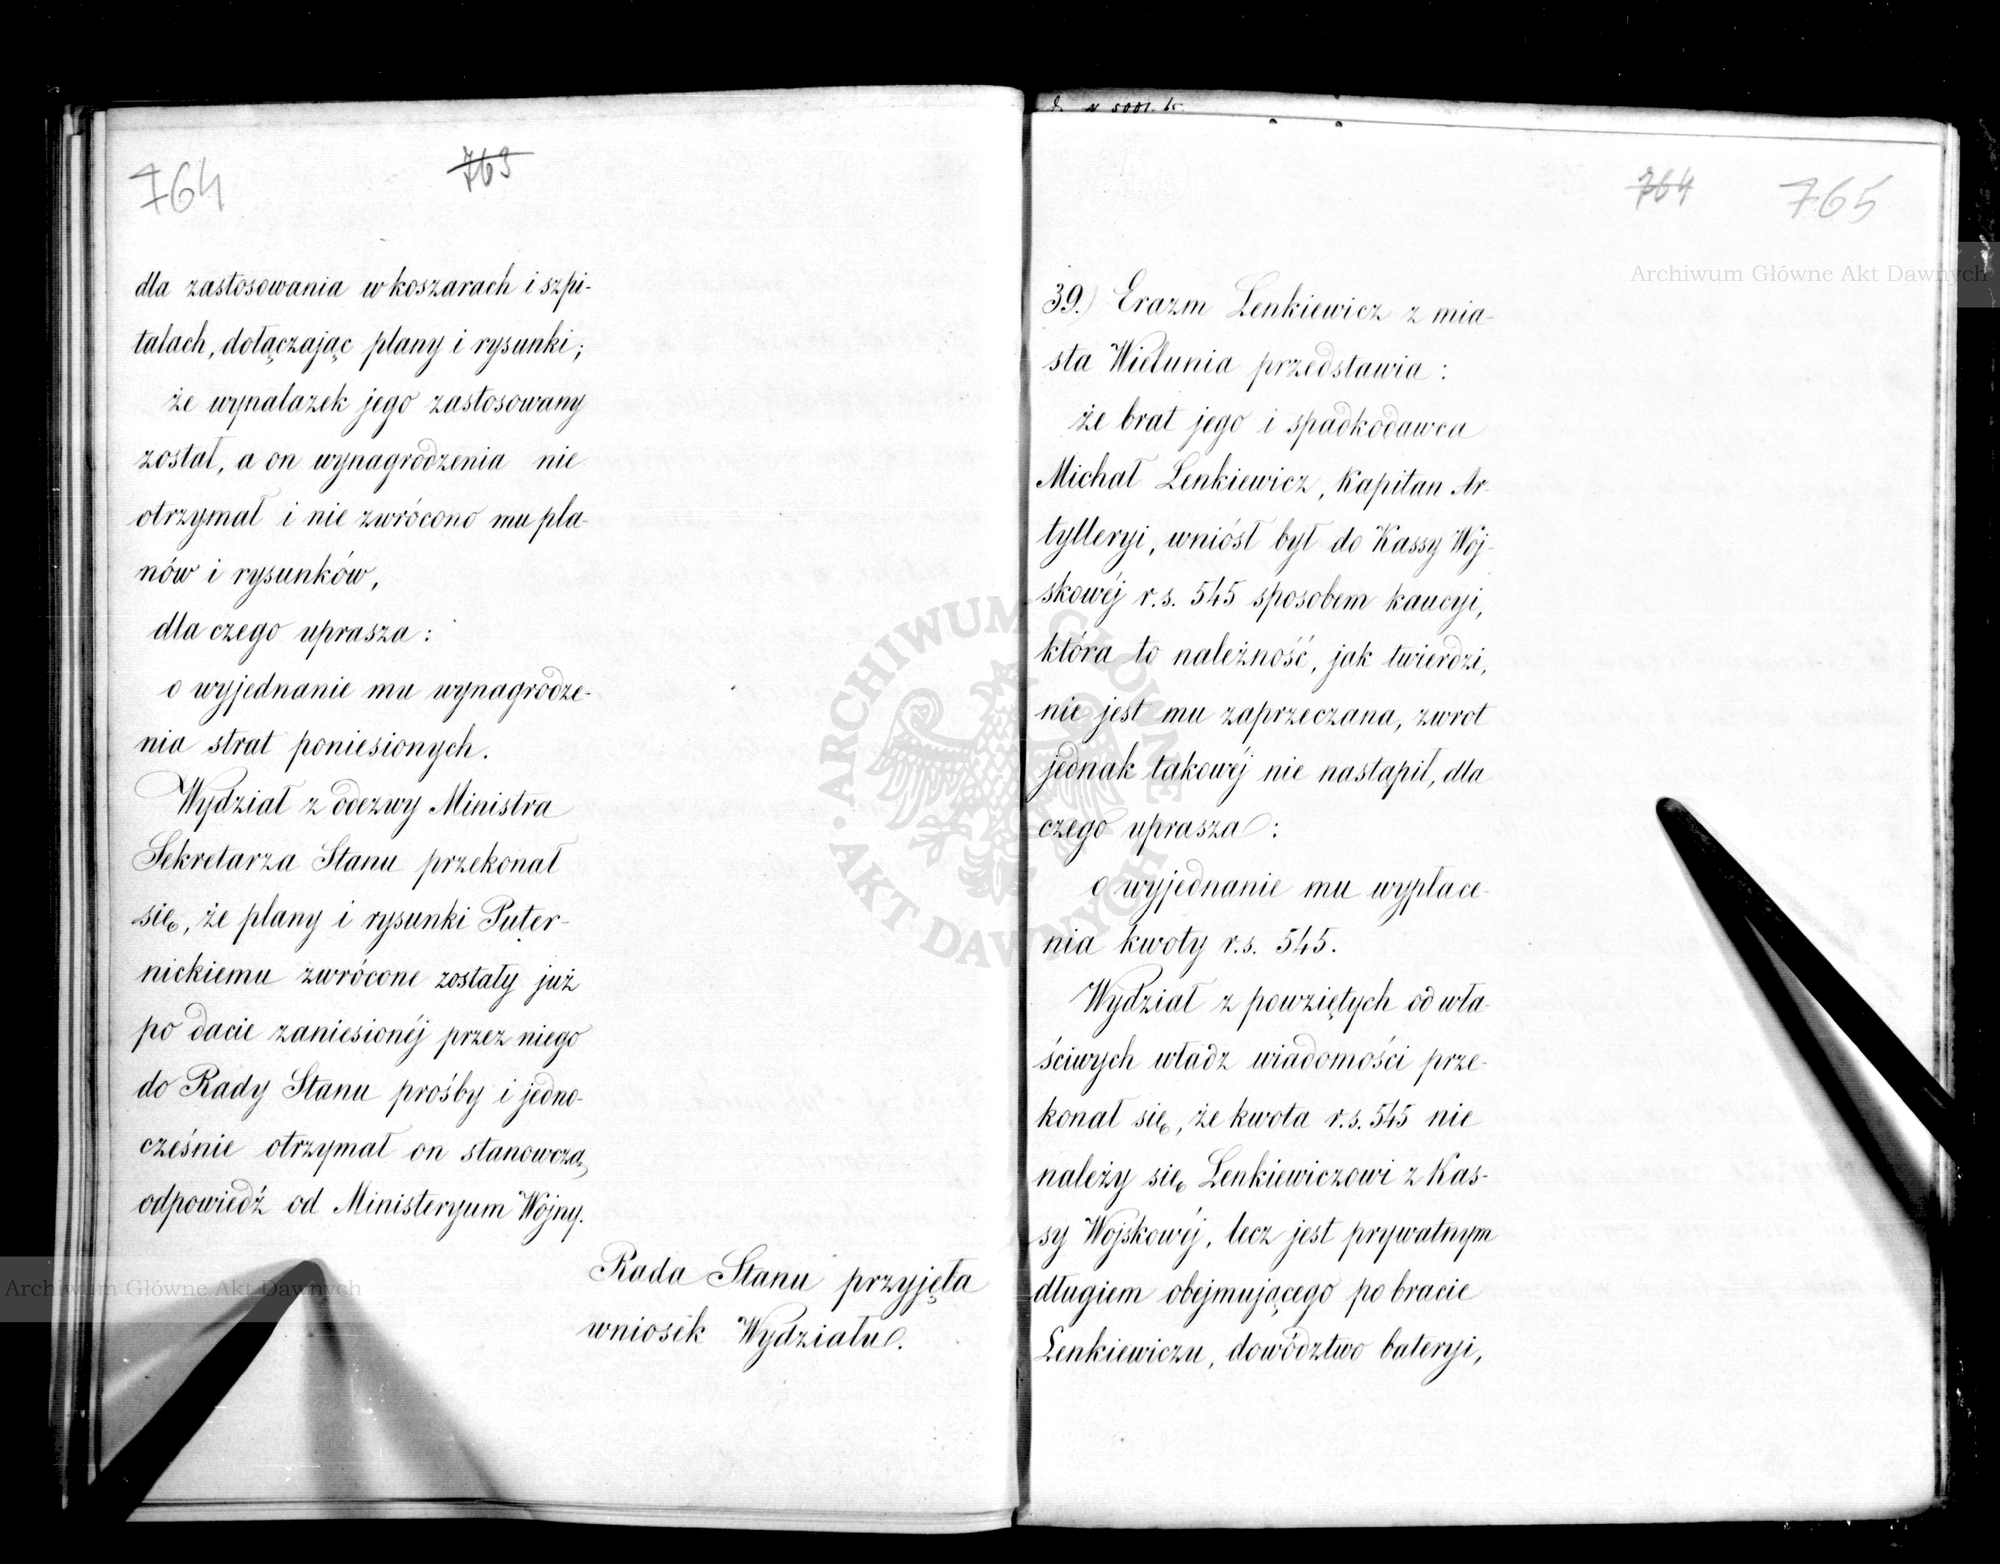 764
763
dla zastosowania w koszarach i szpi-
talach, dołączając plany i rysunki;
że wynalazek jego zastosowany
został, a on wynagrodzenia nie
otrzymał i nie zwrócono mu pla-
nów i rysunków,
dla czego uprasza:
o wyjednanie mu wynagrodze-
nia strat poniesionych.
Wydział z odezwy Ministra
Sekretarza Stanu przekonał
się, że plany i rysunki Puter-
nickiemu zwrócone zostały już
po dacie zaniesionéj przez niego
do Rady Stanu prośby i jedno-
cześnie otrzymał on stanowczą
odpowiedź od Ministeryum Wojny.
Rada Stanu przyjęła
wniosek Wydziału.
764
765
39.) Erazm Lenkiewicz z mia-
sta Wielunia przedstawia:
że brat jego i spadkodawca
Michał Lenkiewicz, Kapitan Ar-
tylleryi, wniósł był do Kassy Woj-
skowéj r.s. 545 sposobem kaucyi,
która to należność, jak twierdzi,
nie jest mu zaprzeczana, zwrot
jednak takowéj nie nastąpił, dla
czego uprasza:
o wyjednanie mu wypłace-
nia kwoty r.s. 545.
Wydział z powziętych od wła-
ściwych władz wiadomości prze-
konał się, że kwota r.s. 545 nie
należy się Lenkiewiczowi z Kas-
sy Wojskowéj, lecz jest prywatnym
długiem obejmującego po bracie
Lenkiewiczu, dowództwo bateryi,
Archiwum Główne Akt Dawnych
Archiwum Główne Akt Dawnych
ARCHIWUM GŁÓWNE AKT DAWNYCH